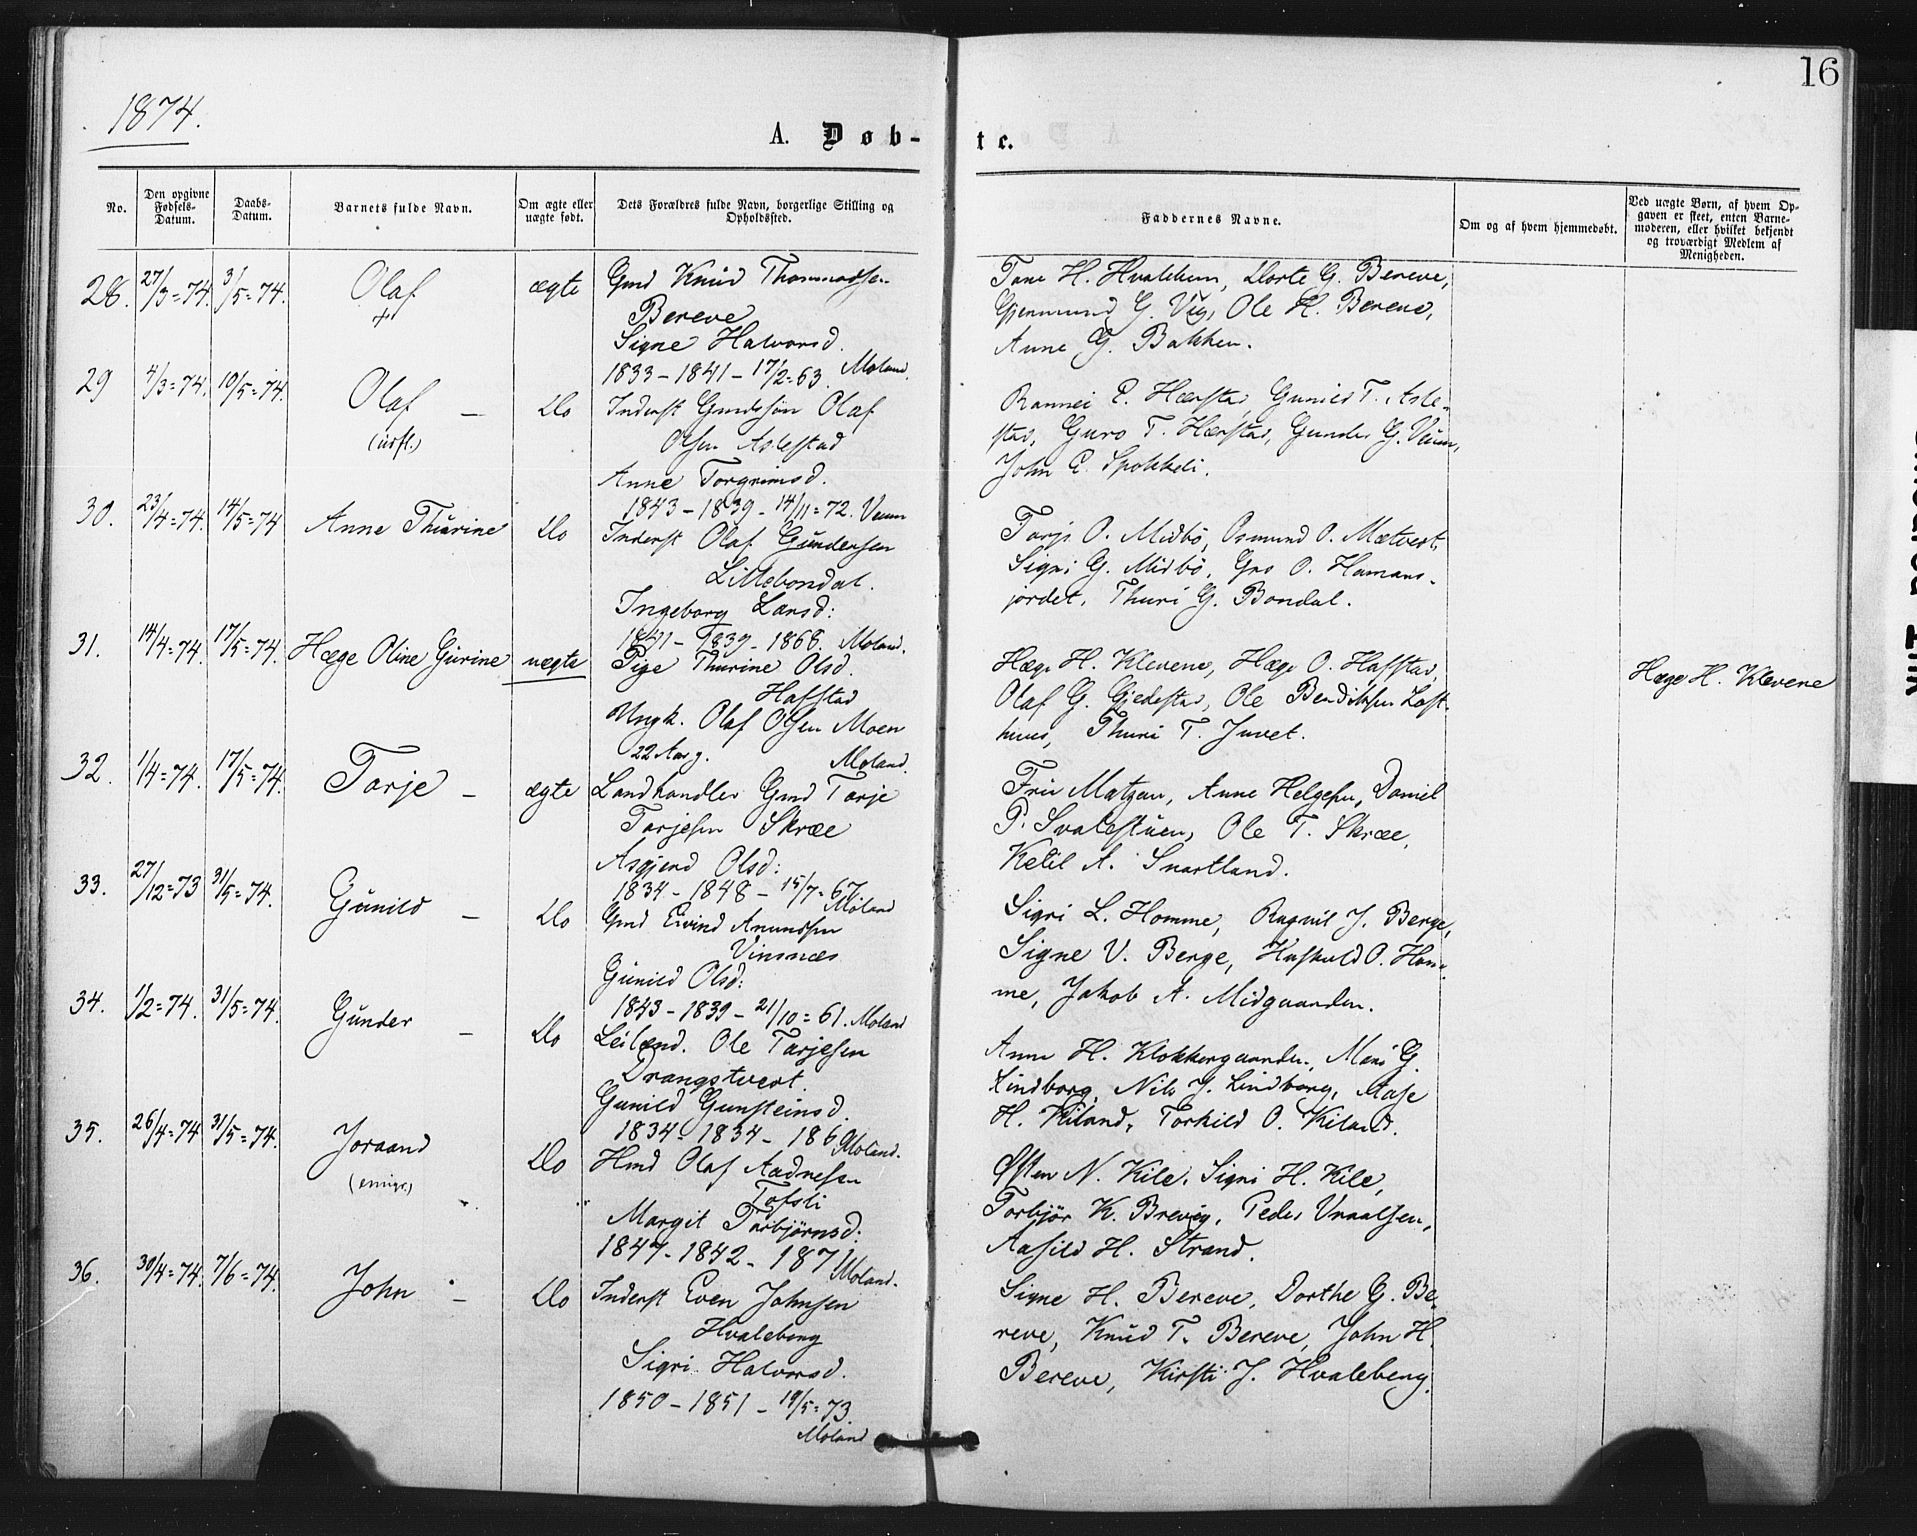 1874.
16
A. Døb-
te.
No.
Den opgivne Fødsels-Datum.
Daabs-Datum.
Barnets fulde Navn.
Om ægte eller uægte født.
Dets Forældres fulde Navn, borgerlige Stilling og Opholdssted.
Faddernes Navne.
Om og af hvem hjemmedøbt.
Ved uægte Børn, af hvem Op-
gaven er skeet, enten Barne-
moderen, eller hvilket bekjendt
og troværdigt Medlem af
Menigheden.
28. 27/3=74. 3/5=74. Olaf ægte Gmd Knud
Bereve
Signe Halvorsd.
1833-1841-17/2=63. Moland.
Tone H. Hvaleberg, Dorte G. Bereve,
Gjermund G. Vig, Ole H. Bereve,
Anne G. Bakken.
29 4/3=74. 10/5=74. Olaf - Do Inderst Olaf
(urfl.)
Olsen Aslestad
Anne Torgrimsd.
1843-1839-14/11=72. Veum
Rannei E. Hærstad, Gunild T. Asle-
stad, Guro T. Hærstad, Gunder G. Veum,
John E. Spokkeli.
30. 23/4=74. 14/5=74 Anne Thurine Do Inderst Olaf Gundersen
Littlebondal.
Ingeborg Larsd:
1841-1839-1868. Moland.
Tarje O. Midbö, Osmund O. Mætveit,
Sigri G. Midbö, Gro O. Hamars-
jordet, Thuri G. Bondal.
31. 14/4=74. 17/5=74. Hæge Oline Gurine uægte Pige Thurine Olsd.
Hafstad
Ungk. Olaf Olsen Moen
22 Aar g. Moland.
Hæge H. Klevene, Hæge O. Hafstad,
Olaf G. Gjedestad, Ole Bendiksen Loft-
huus, Thuri T. Juvet.
Hæge H. Klevene
32. 1/4=74. 17/5=74. Tarje - ægte Landhandler Gmd Tarje
Tarjesen Skræe
Asgjerd Olsd:
1834-1848-15/7=67 Moland
Fru Matzau, Anne Helgesen, Daniel
P. Svalestuen, Ole T. Skræe,
Ketil A. Snartland.
33. 27/12=73 31/5=74. Gunild - Do Gmd Eivind Anundsen
Vinsnæs
Gunild Olsd:
1843-1839-21/10=61. Moland
Sigri L. Homme, Ragnil J. Berge,
Signe V. Berge, O. Hom-
me, Jakob A. Midgaarden.
34. 1/2=74. 31/5=74. Gunder - Do Leilænd. Ole Tarjesen
Drangstveit.
Gunild Gunsteinsd.
1834-1834-186 Moland.
Anne H. Klokkergaarden, Mari G.
Lindborg, Nils J. Lindborg, Aase
H. Kiland, Torkild O. Kiland.
35. 26/4=74 31/5=74. Joraand Do Hmd Olaf Aadnesen
(emigr.)
Tofsli
Margit Torbjørnsd:
1847-1842-187 Moland.
Østen N. Kile, Sigri H. Kile,
Torbjør K. Brevig, Peder Vraalsen,
Aasild H. Strand.
36. 30/4=74. 7/6=74. John - Do Inderst Even Johnsen
Hvaleberg
Sigri Halvorsd.
1850-1851-19/5=73.
Moland
Signe H. Bereve, Dorthe G. Be-
reve, Knud T. Bereve, John H.
Bereve, Kirsti J. Hvaleberg.